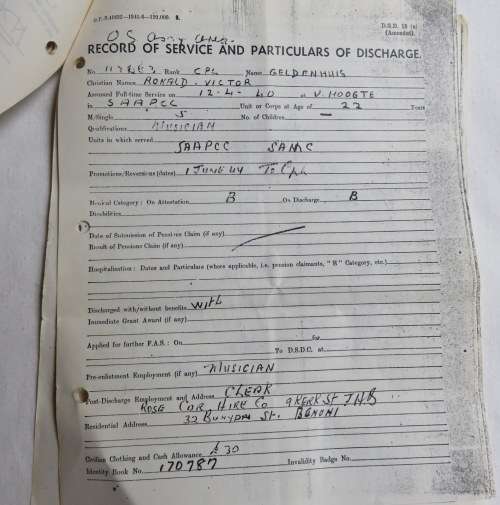 D.S.D. 18 (a)
(Amended).
RECORD OF SERVICE AND PARTICULARS OF DISCHARGE.
No. Rank CPL Name GELDENHUIS
Christian Names RONALD VICTOR
Assumed Full-time Service on 12-4-40 at V. HOOGTE
in SAAPCC Unit or Corps at Age of 22 Years
M/Single S No. of Children —
Qualifications MUSICIAN
Units in which served
SAAPCC SAMC
Promotions/Reversions (dates) 1 JUNE 44 To Cpl
Medical Category: On Attestation B On Discharge B
Disabilities
Date of Submission of Pensions Claim (if any)
Result of Pensions Claim (if any)
Hospitalisation: Dates and Particulars (where applicable, i.e. pension claimants, "R" Category, etc.)
Discharged with/without benefits WITH
Immediate Grant Award (if any)
Applied for further P.A.S.: On for
To D.S.D.C. at
Pre-enlistment Employment (if any) MUSICIAN
Post-Discharge Employment and Address CLERK
ROSE CAR HIRE Co 9 KERK ST JHB
Residential Address 32 BUNYAN St. BENONI
Civilian Clothing and Cash Allowance £30
Identity Book No. 170787 Invalidity Badge No.